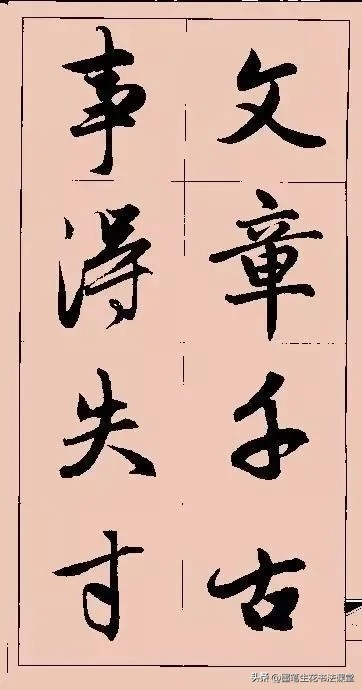 文章千古
事得失寸
头条 @墨笔生花书法课堂